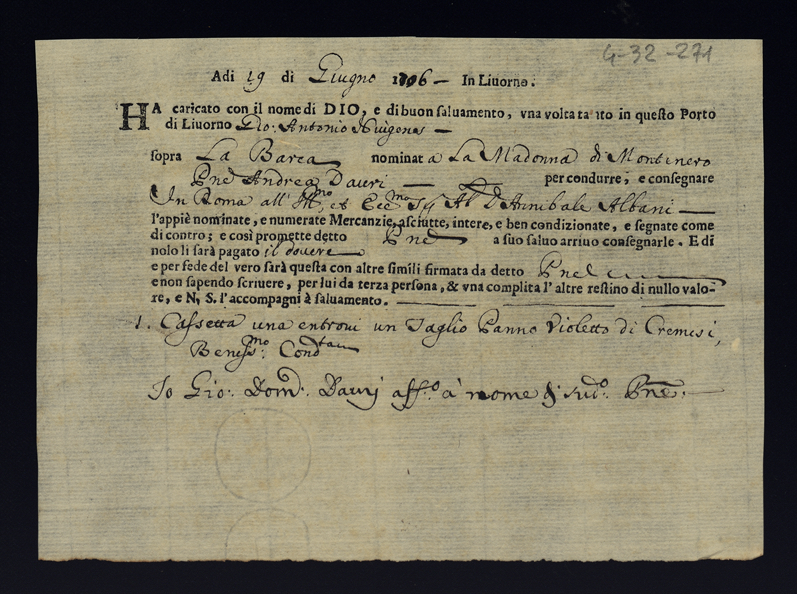 4-32-271
Adi 19 di Giugno 1706 — In Liuorno.
HA caricato con il nome di DIO, e di buon saluamento, vna volta tanto in questo Porto
di Liuorno Gio: Antonio Huigenes —
sopra La Barca nominata La Madonna di Montenero
Pne Andrea Dauri — per condurre, e consegnare
In Roma all' Illmo, et Eccmo Sig Ab D Annibale Albani —
l'appiè nominate, e numerate Mercanzie, asciutte, intere, e ben condizionate, e segnate come
di contro; e così promette detto Pne a suo saluo arriuo consegnarle. E di
nolo li sarà pagato il douere
e per fede del vero sarà questa con altre simili firmata da detto Pne
e non sapendo scriuere, per lui da terza persona, & vna complita l'altre restino di nullo valo-
re, e N, S. l'accompagni à saluamento.
1. Cassetta una entroui un Taglio Panno Violetto di Cremesi,
Beniss:mo Cond
Io Gio: Dom: Dauri aff:o à nome di sud:o Pne: —